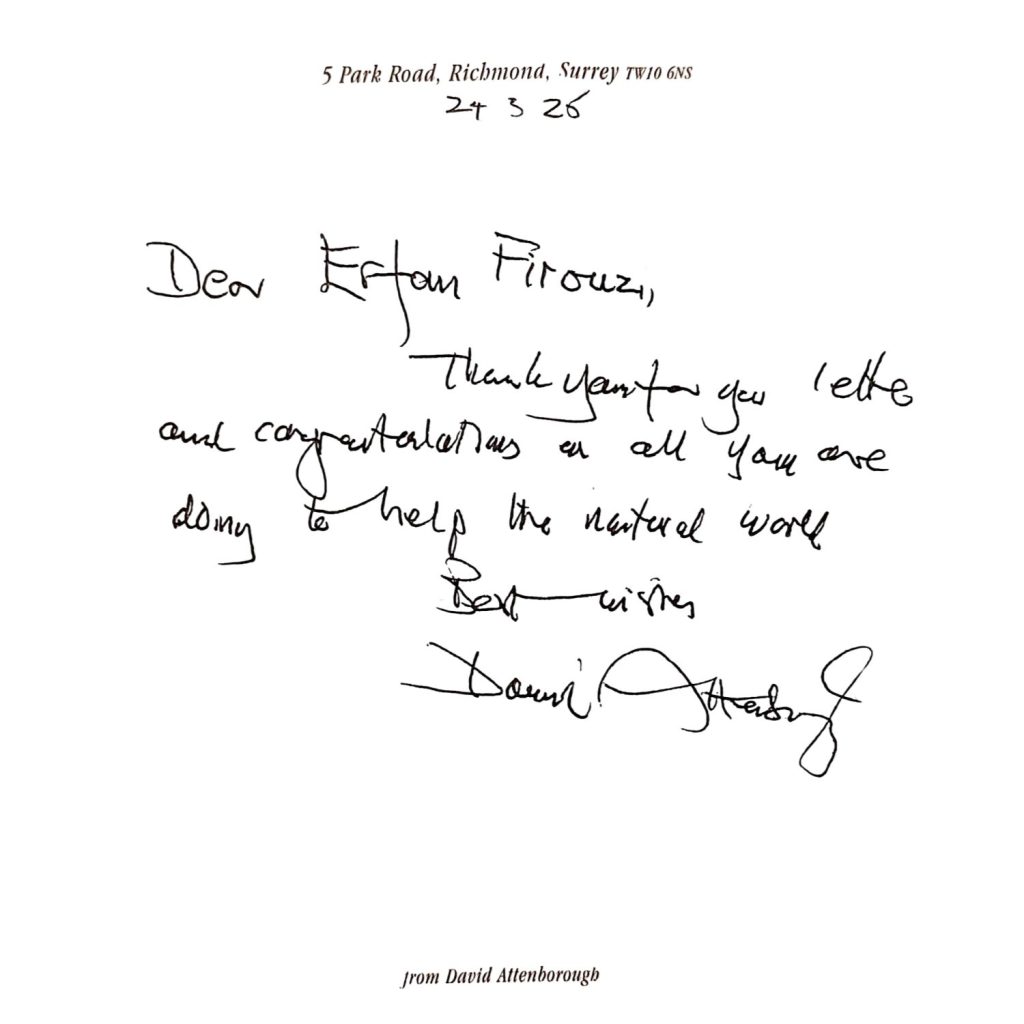 5 Park Road, Richmond, Surrey TW10 6NS
24 3 26
Dear Erfan Firouzi,
Thank you for your letter
and congratulations on all you are
doing to help the natural world
Best wishes
David Attenborough
from David Attenborough